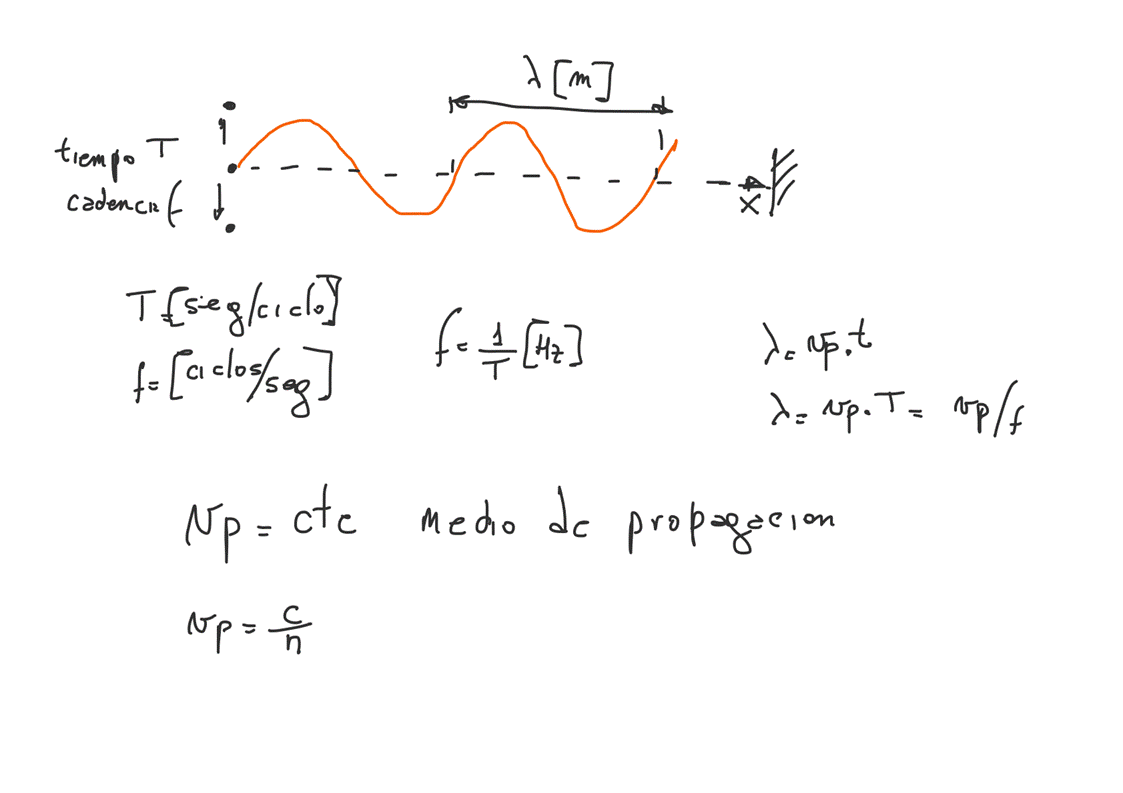 λ [m]
tiempo T
cadencia f
x
T=[seg/ciclo]
f=[ciclos/seg]
f=1/T [Hz]
λ=vp.t
λ=vp.T=vp/f
vp=cte medio de propagacion
vp=c/n